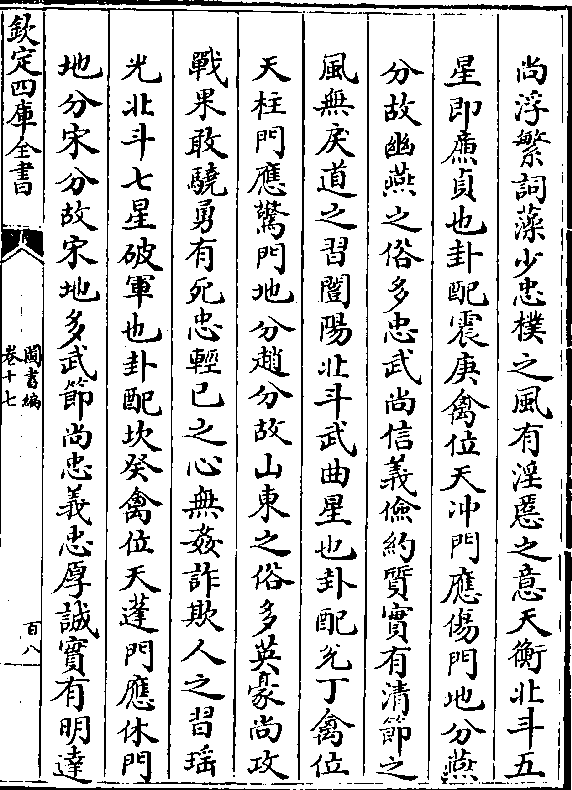 尚浮繁詞藻少忠樸之風有淫慝之意天衡北斗五
星即㢘貞也卦配震庚禽位天冲門應傷門地分燕
分故幽燕之俗多忠武尚信義儉約質實有清節之
風無戾道之習闓陽北斗武曲星也卦配兊丁禽位
天柱門應驚門地分趙分故山東之俗多英豪尚攻
戰果敢驍勇有死忠輕已之心無姦詐欺人之習瑶
光北斗七星破軍也卦配坎癸禽位天蓬門應休門
地分宋分故宋地多武節尚忠義忠厚誠實有明達
欽定四庫全書
圖書編
卷十七
百八